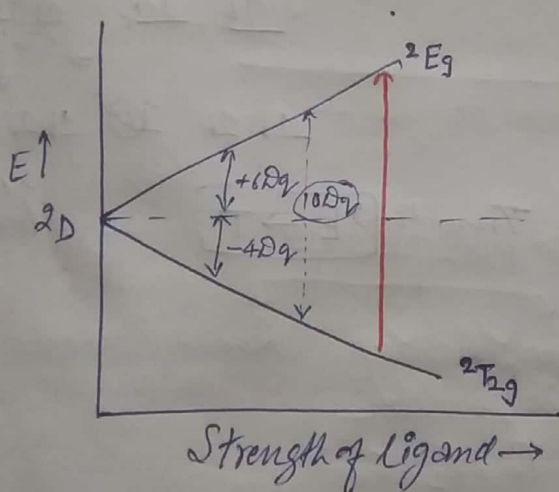 ²Eg
E↑
+6Dq
10Dq
²D
-4Dq
²T₂g
Strength of ligand →